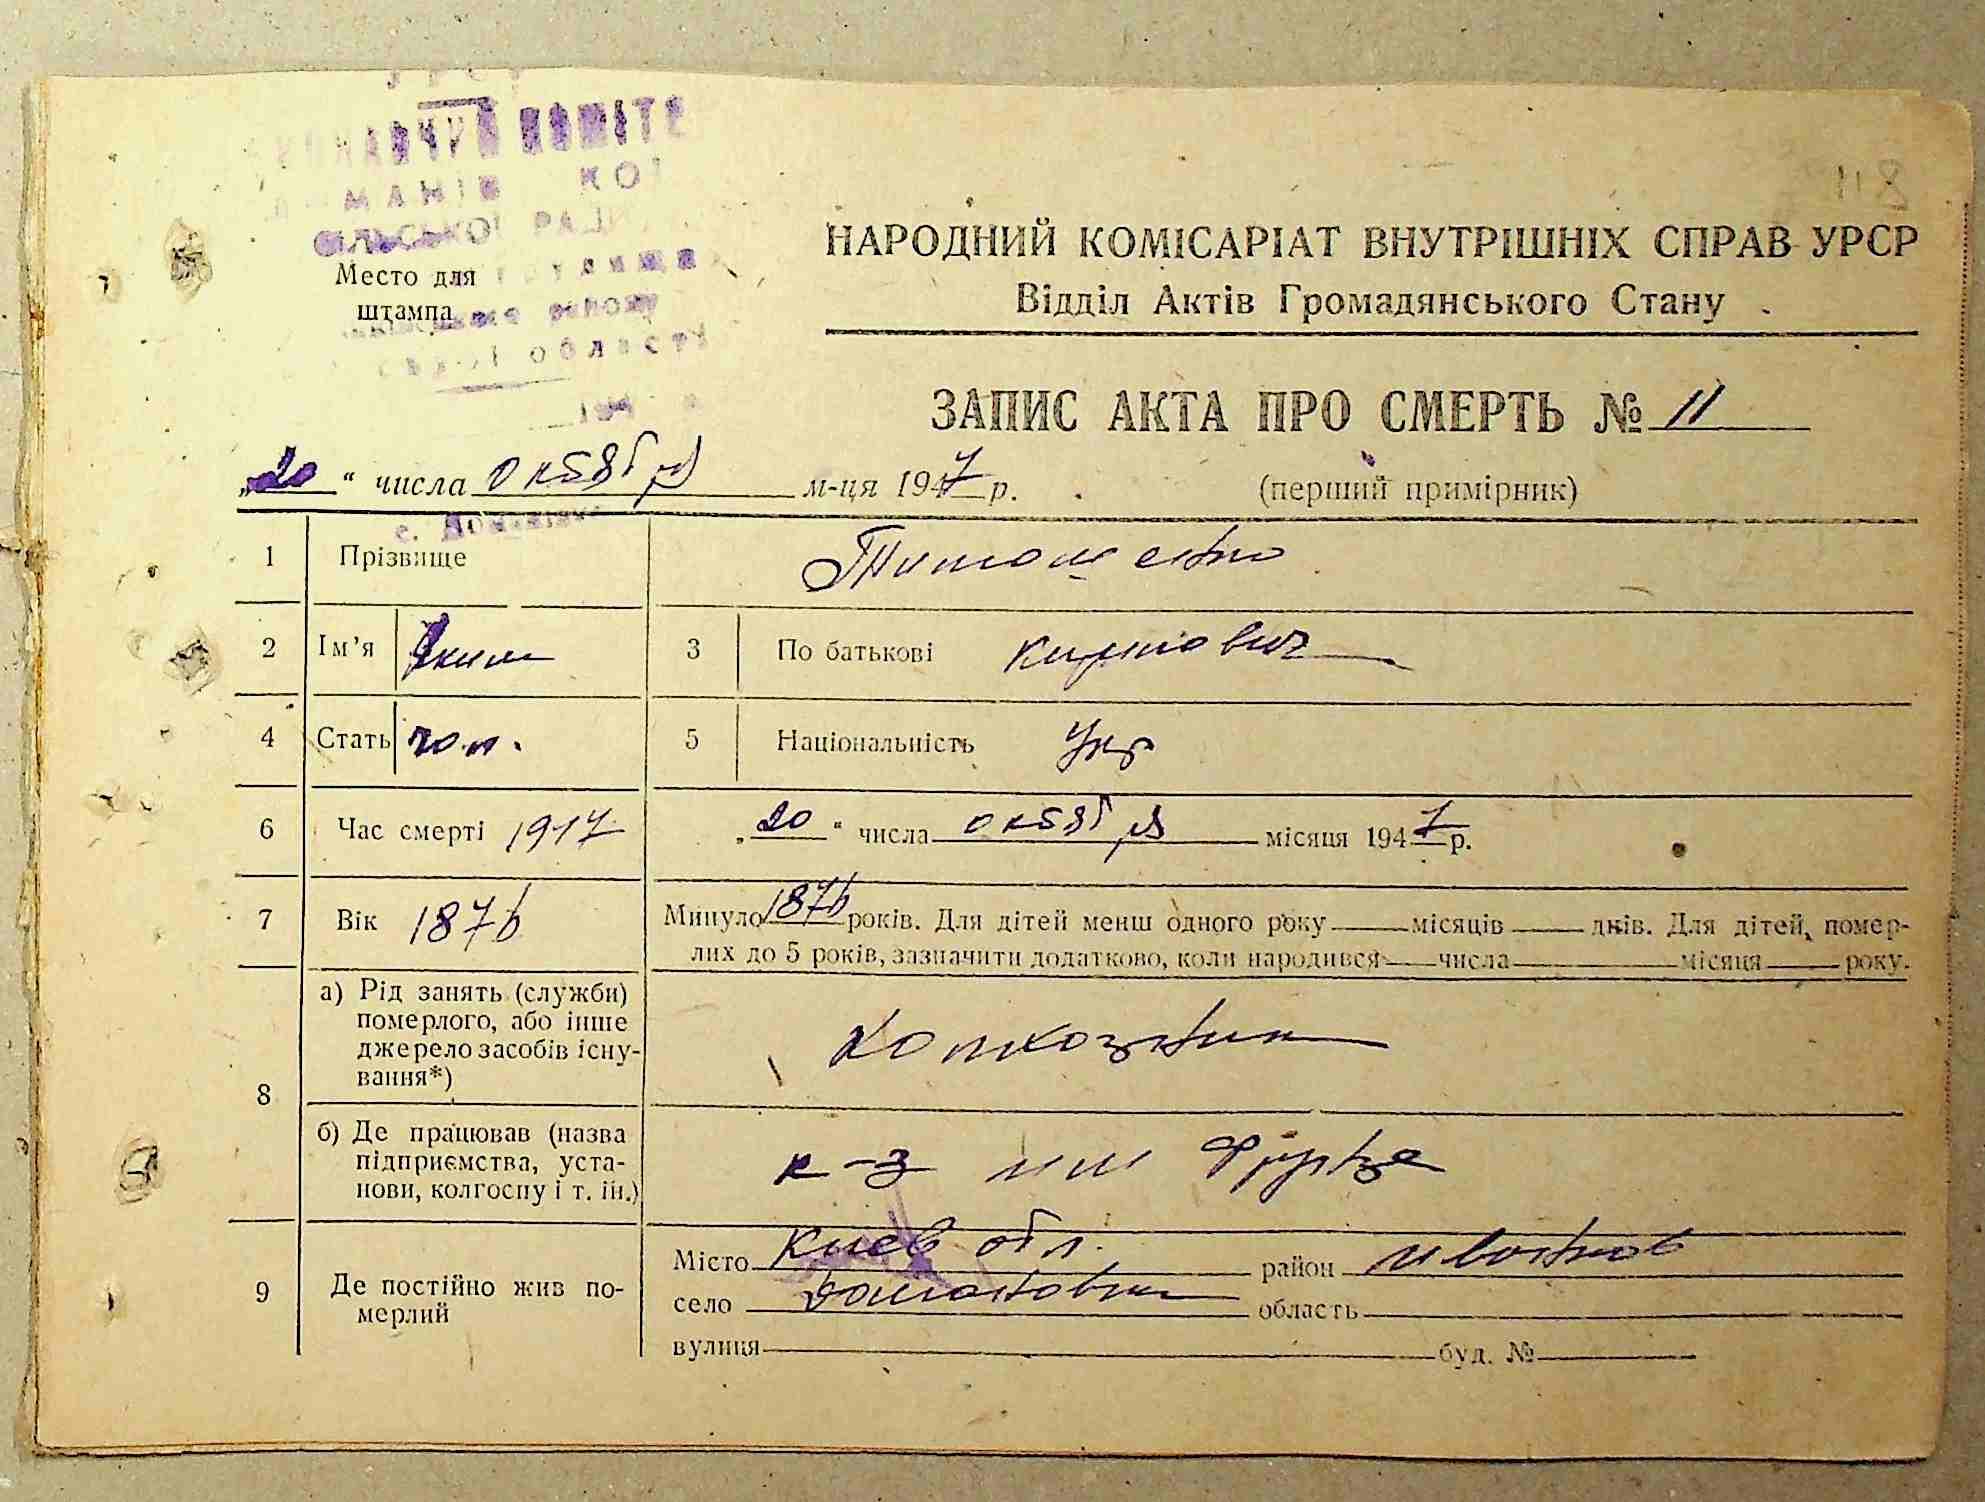 118
КОМІТЕ
СІЛЬСЬКОЇ РАДИ
Место для
штампа
району
області
НАРОДНИЙ КОМІСАРІАТ ВНУТРІШНІХ СПРАВ УРСР
Відділ Актів Громадянського Стану
ЗАПИС АКТА ПРО СМЕРТЬ № 11
„20“ числа октября м-ця 1947 р. (перший примірник)
1 Прізвище Тимошенко
2 Ім’я Яким 3 По батькові Карпович
4 Стать чол. 5 Національність Укр
6 Час смерті 1947 „20“ числа октября місяця 1947 р.
7 Вік 1876 Минуло 1876 років. Для дітей менш одного року місяців днів. Для дітей, помер-
лих до 5 років, зазначити додатково, коли народився числа місяця року.
8 а) Рід занять (служби)
померлого, або інше
джерело засобів існу-
вання*)
колхозник
б) Де працював (назва
підприємства, уста-
нови, колгоспу і т. ін.)
к-з им Фрунзе
9 Де постійно жив по-
мерлий
Місто Киев обл. район
село Домановка область
вулиця буд. №